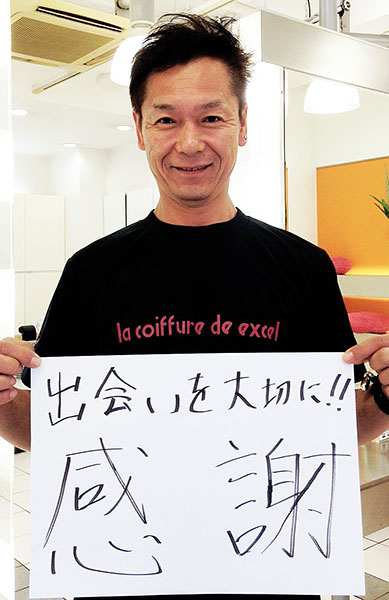 la coiffure de excel
出会いを大切に!!
感謝